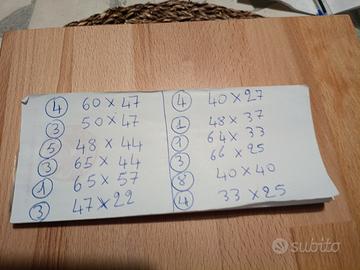 4 60 x 47
3 50 x 47
5 48 x 44
3 65 x 44
1 65 x 57
3 47 x 22
4 40 x 27
1 48 x 37
1 64 x 33
3 66 x 25
8 40 x 40
4 33 x 25
subito